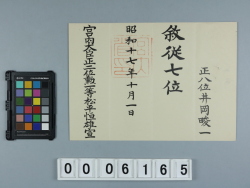 正八位井岡畯一
敍從七位
昭和十七年十月一日
宮内大臣正三位勲一等松平恒雄宣
0006165